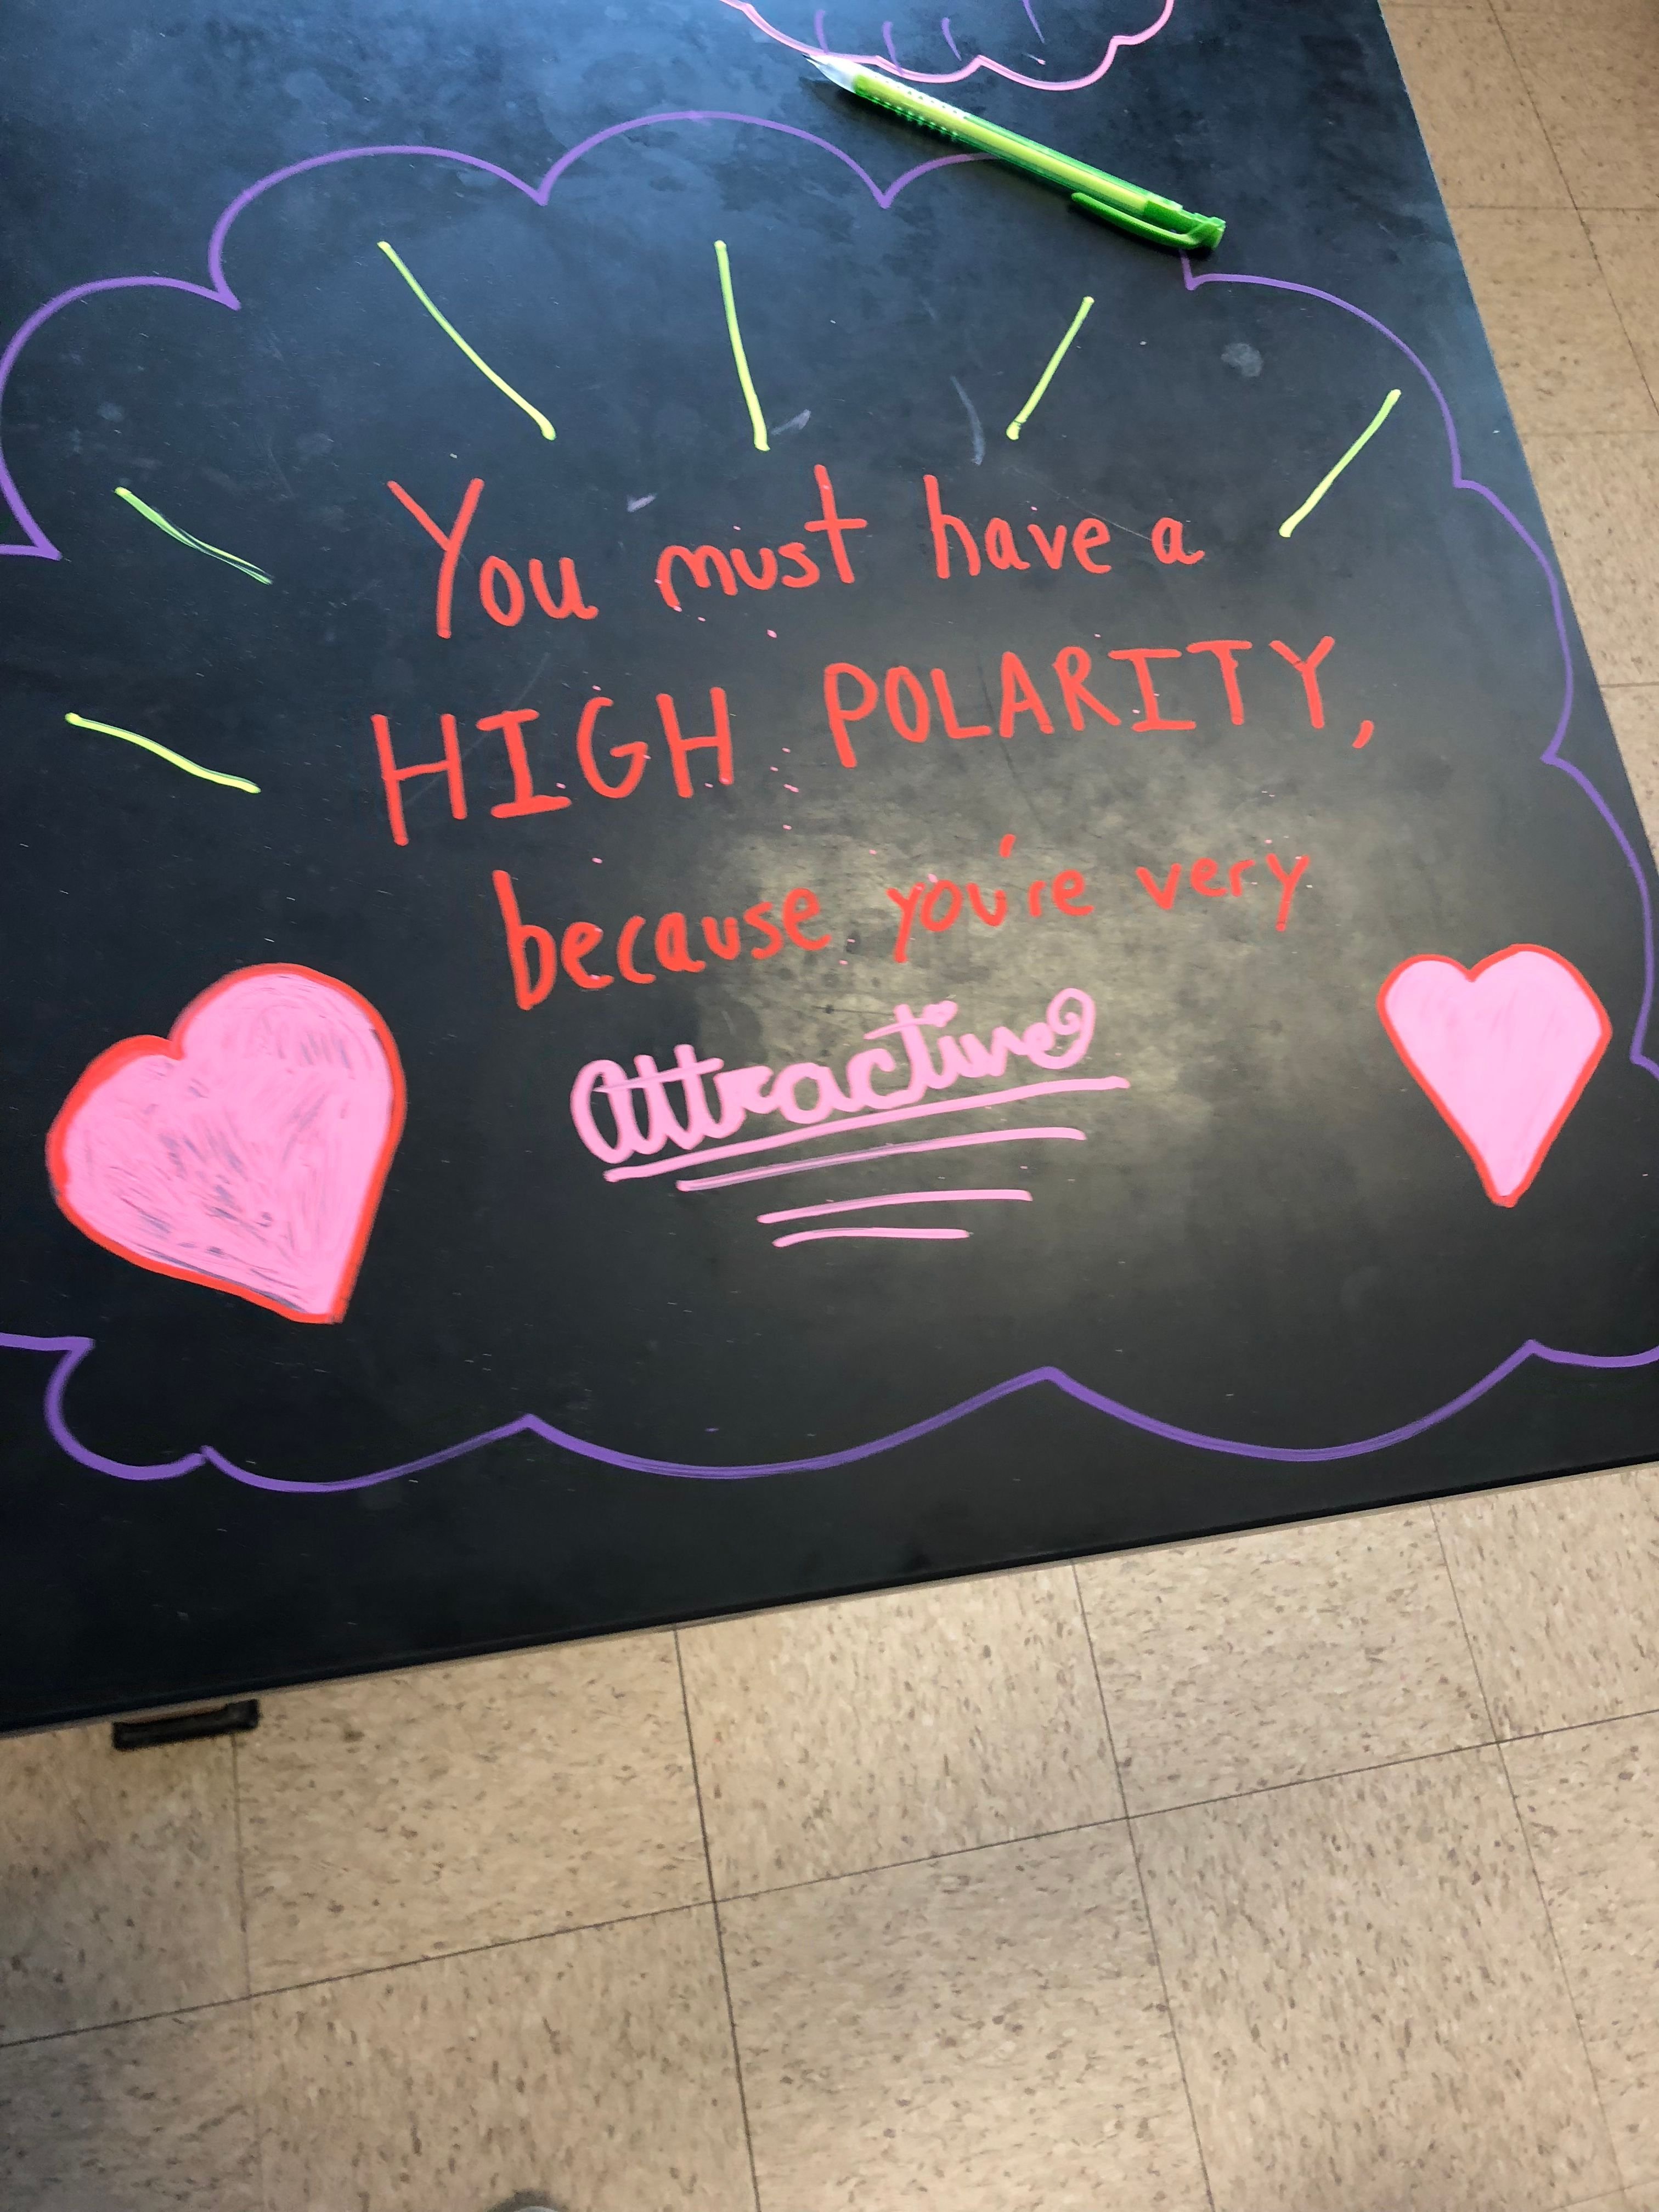 You must have a
HIGH POLARITY,
because you're very
attractive